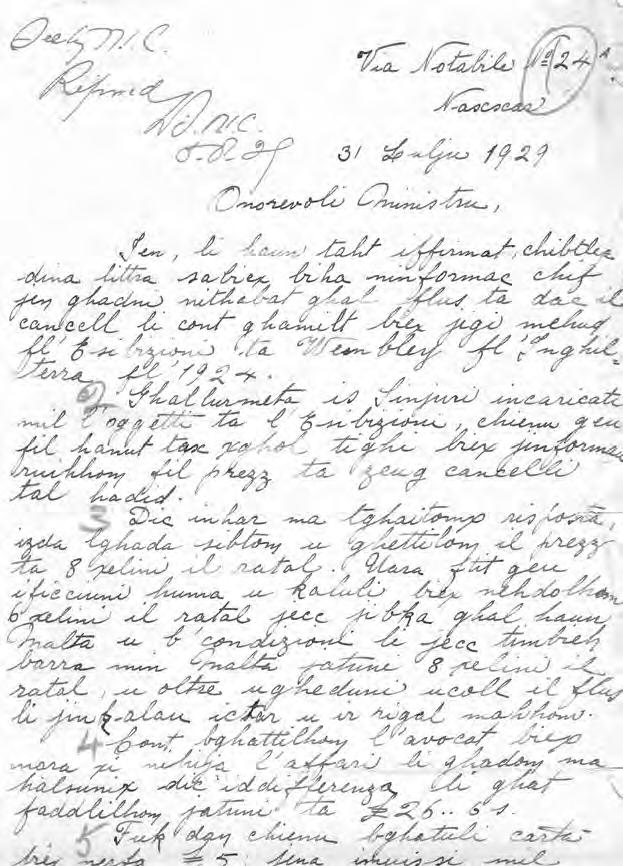 Via Notabile No 24A
Naxxar
31 Lulju 1929
Onorevoli Ministru,
Jen, li haun taht iffirmat, chibtlex
dina littra sabiex biha ninformac chif
jen ghadni nithabat ghal flus ta dac il
cancell li cont ghamilt biex jigi mehud
fl'Esibizioni ta Wembley fl'Inghil-
terra fl'1924.
2) Ghallurmeta is Sinjuri incaricati
mil l'oggetti ta l'Esibizioni, chienu geu
fil hanut tax xghol tighi biex jinformau
ruihhom fil prezz ta zeug cancelli
tal hadid.
3 Dic inhar ma tghaitomx risposta,
izda lghada sibtom u ghettilom il prezz
ta 8 xelini il ratal. Uara ftit geu
ificcuini huma u kaluli biex nehdolhom
6 xelini il ratal jecc jibka ghal haun
Malta u b'condizioni li jecc timbieh
barra min Malta jatuni 8 xelini il
ratal, u oltre ugheduni ucoll il flus
li jinkalau ictar u ir rigal mahhom.
4 Cont bghattilhom l'avocat biex
mara xi nehija l'affari li ghadom ma
halsunix dic iddifferenza li ghat
faddlilhom jatuni ta £26..5s.
5 Fuk dan chienu bghatuli carta
biex nerfa £5